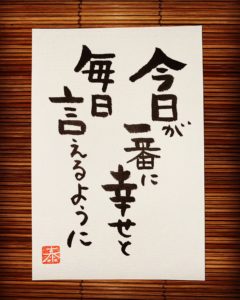 今日が
一番に
幸せと
毎日
言えるように
泰